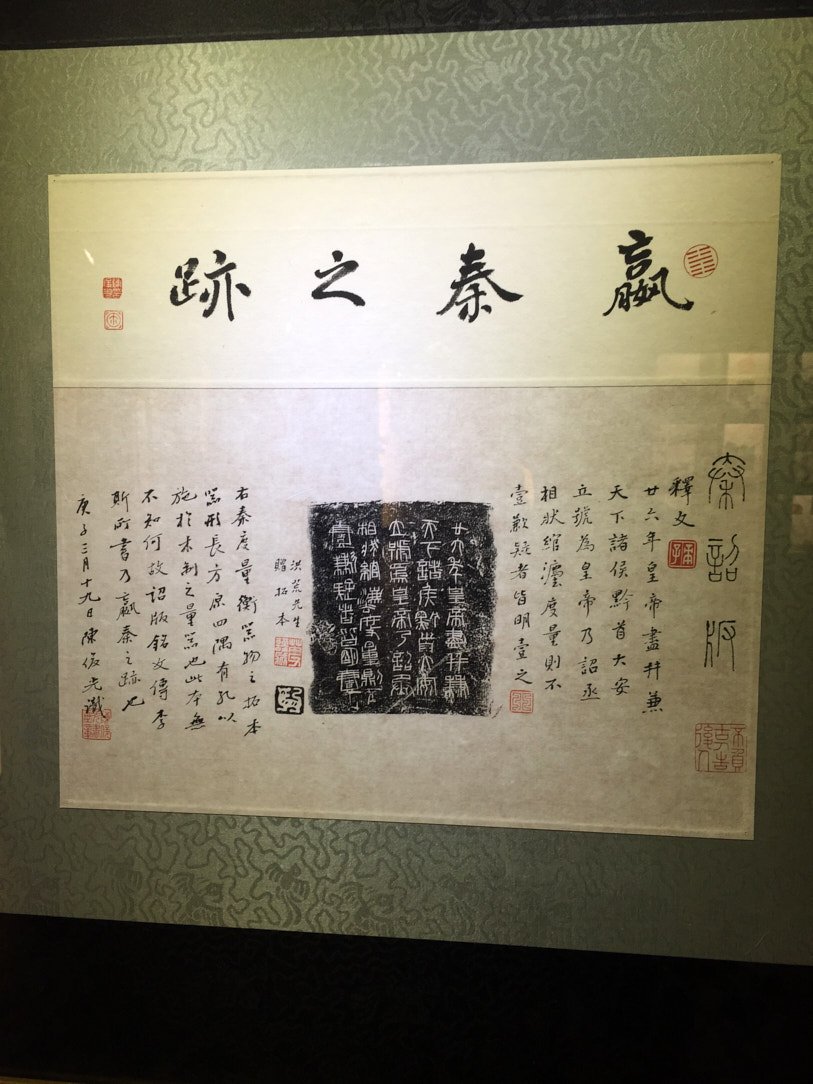 嬴秦之跡
秦詔版
釋文
廿六年皇帝盡并兼
天下諸侯黔首大安
立號為皇帝乃詔丞
相狀綰灋度量則不
壹歉疑者皆明壹之
廿六年皇帝盡并兼
天下諸侯黔首大安
立號為皇帝乃詔丞
相狀綰灋度量則不
壹歉疑者皆明壹之
洪荒先生
贈拓本
右秦度量衡器物之拓本
器形長方原四隅有孔以
施於木制之量器也此本無
不知何故詔版銘文傳李
斯所書乃嬴秦之跡也
庚子三月十九日陳俊光識